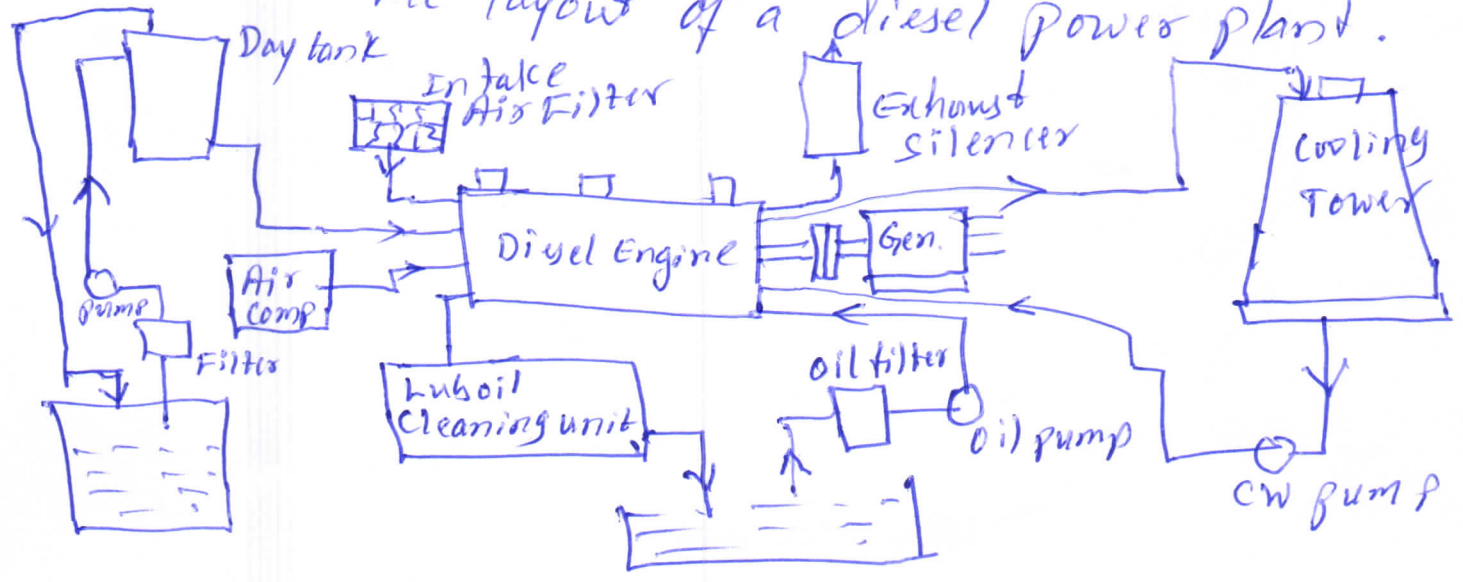 The layout of a diesel power plant.
Day tank
Intake
Air Filter
Exhaust
Silencer
Cooling
Tower
Diesel Engine
Gen.
Air
Comp
Pump
Filter
Lub oil
Cleaning unit
Oil filter
Oil pump
CW pump